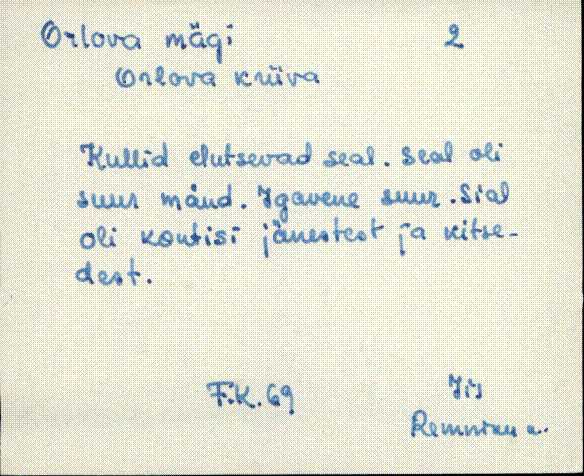 Orlova mägi 2
Orlova kriiva
Kullid elutsevad seal. Seal oli
suur mänd. Igavene suur. Sial
oli kontisi jänestest ja kitse-
dest.
F.K. 69 Iis
Remniku k.